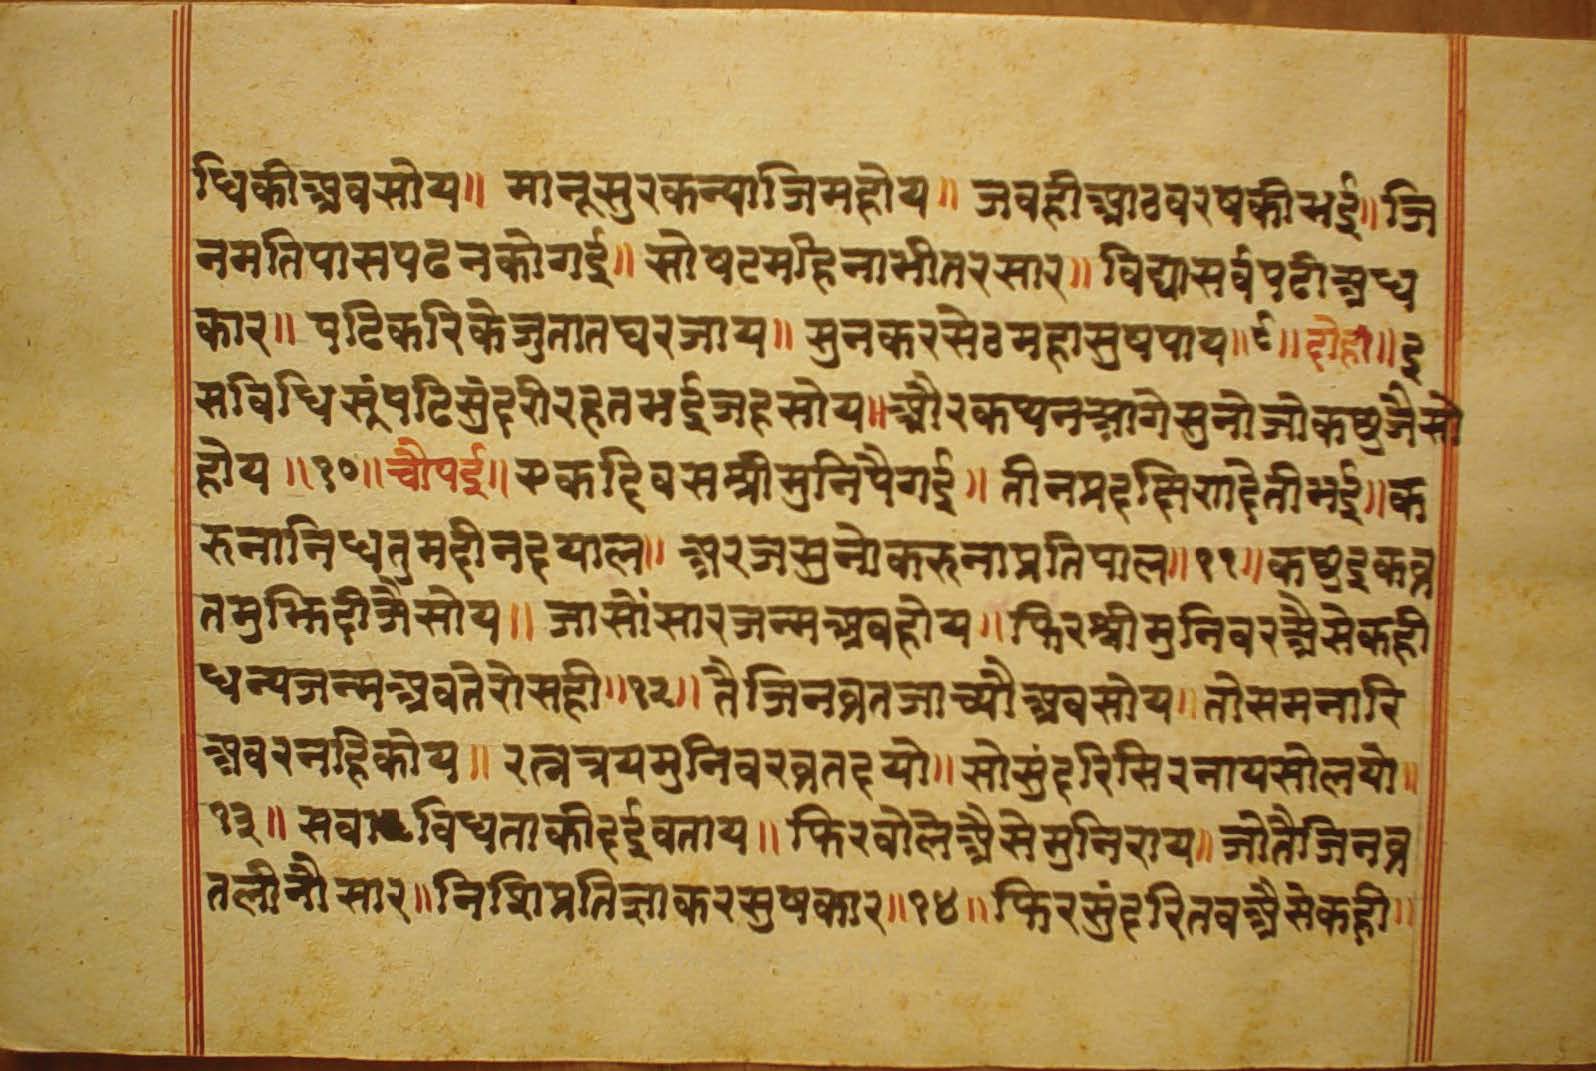 धिकीअबसोय॥ मानूसुरकन्याजिमहोय॥ जबहीआठबरषकीभई॥जि
नमतिपासपढनकोगई॥ सोषटमहिनाभीतरसार॥ विद्यासर्वपढीअध
कार॥ पढिकरिकेजुतातघरजाय॥ सुनकरसेठमहासुषपाय॥९॥दोहा॥इ
सविधिसूंपढिसुंदरीरहतभईजहसोय॥औरकथनआगेसुनोजोकछुजैसो
होय॥१०॥चौपई॥एकदिवसश्रीमुनिपैगई॥ तीनप्रदक्षिणादेतीभई॥क
रुनानिधतुमदीनदयाल॥ अरजसुनोकरुनाप्रतिपाल॥११॥कछुइकव्र
तमुझिदीजैसोय॥ जासोंसारजन्मअबहोय॥फिरश्रीमुनिवरअैसेकही
धन्यजन्मअबतेरोसही॥१२॥ तैजिनव्रतजाच्यौअबसोय॥तोसमनारि
अवरनहिकोय॥ रत्नत्रयमुनिवरव्रतदयो॥सोसुंदरिसिरनायसोलयो॥
१३॥ सब विधताकीदईबताय॥ फिरबोलेअैसेमुनिराय॥जोतैजिनव्र
तलीनौसार॥निशिप्रतिज्ञाकरसुषकार॥१४॥ फिरसुंदरितबअैसेकही॥